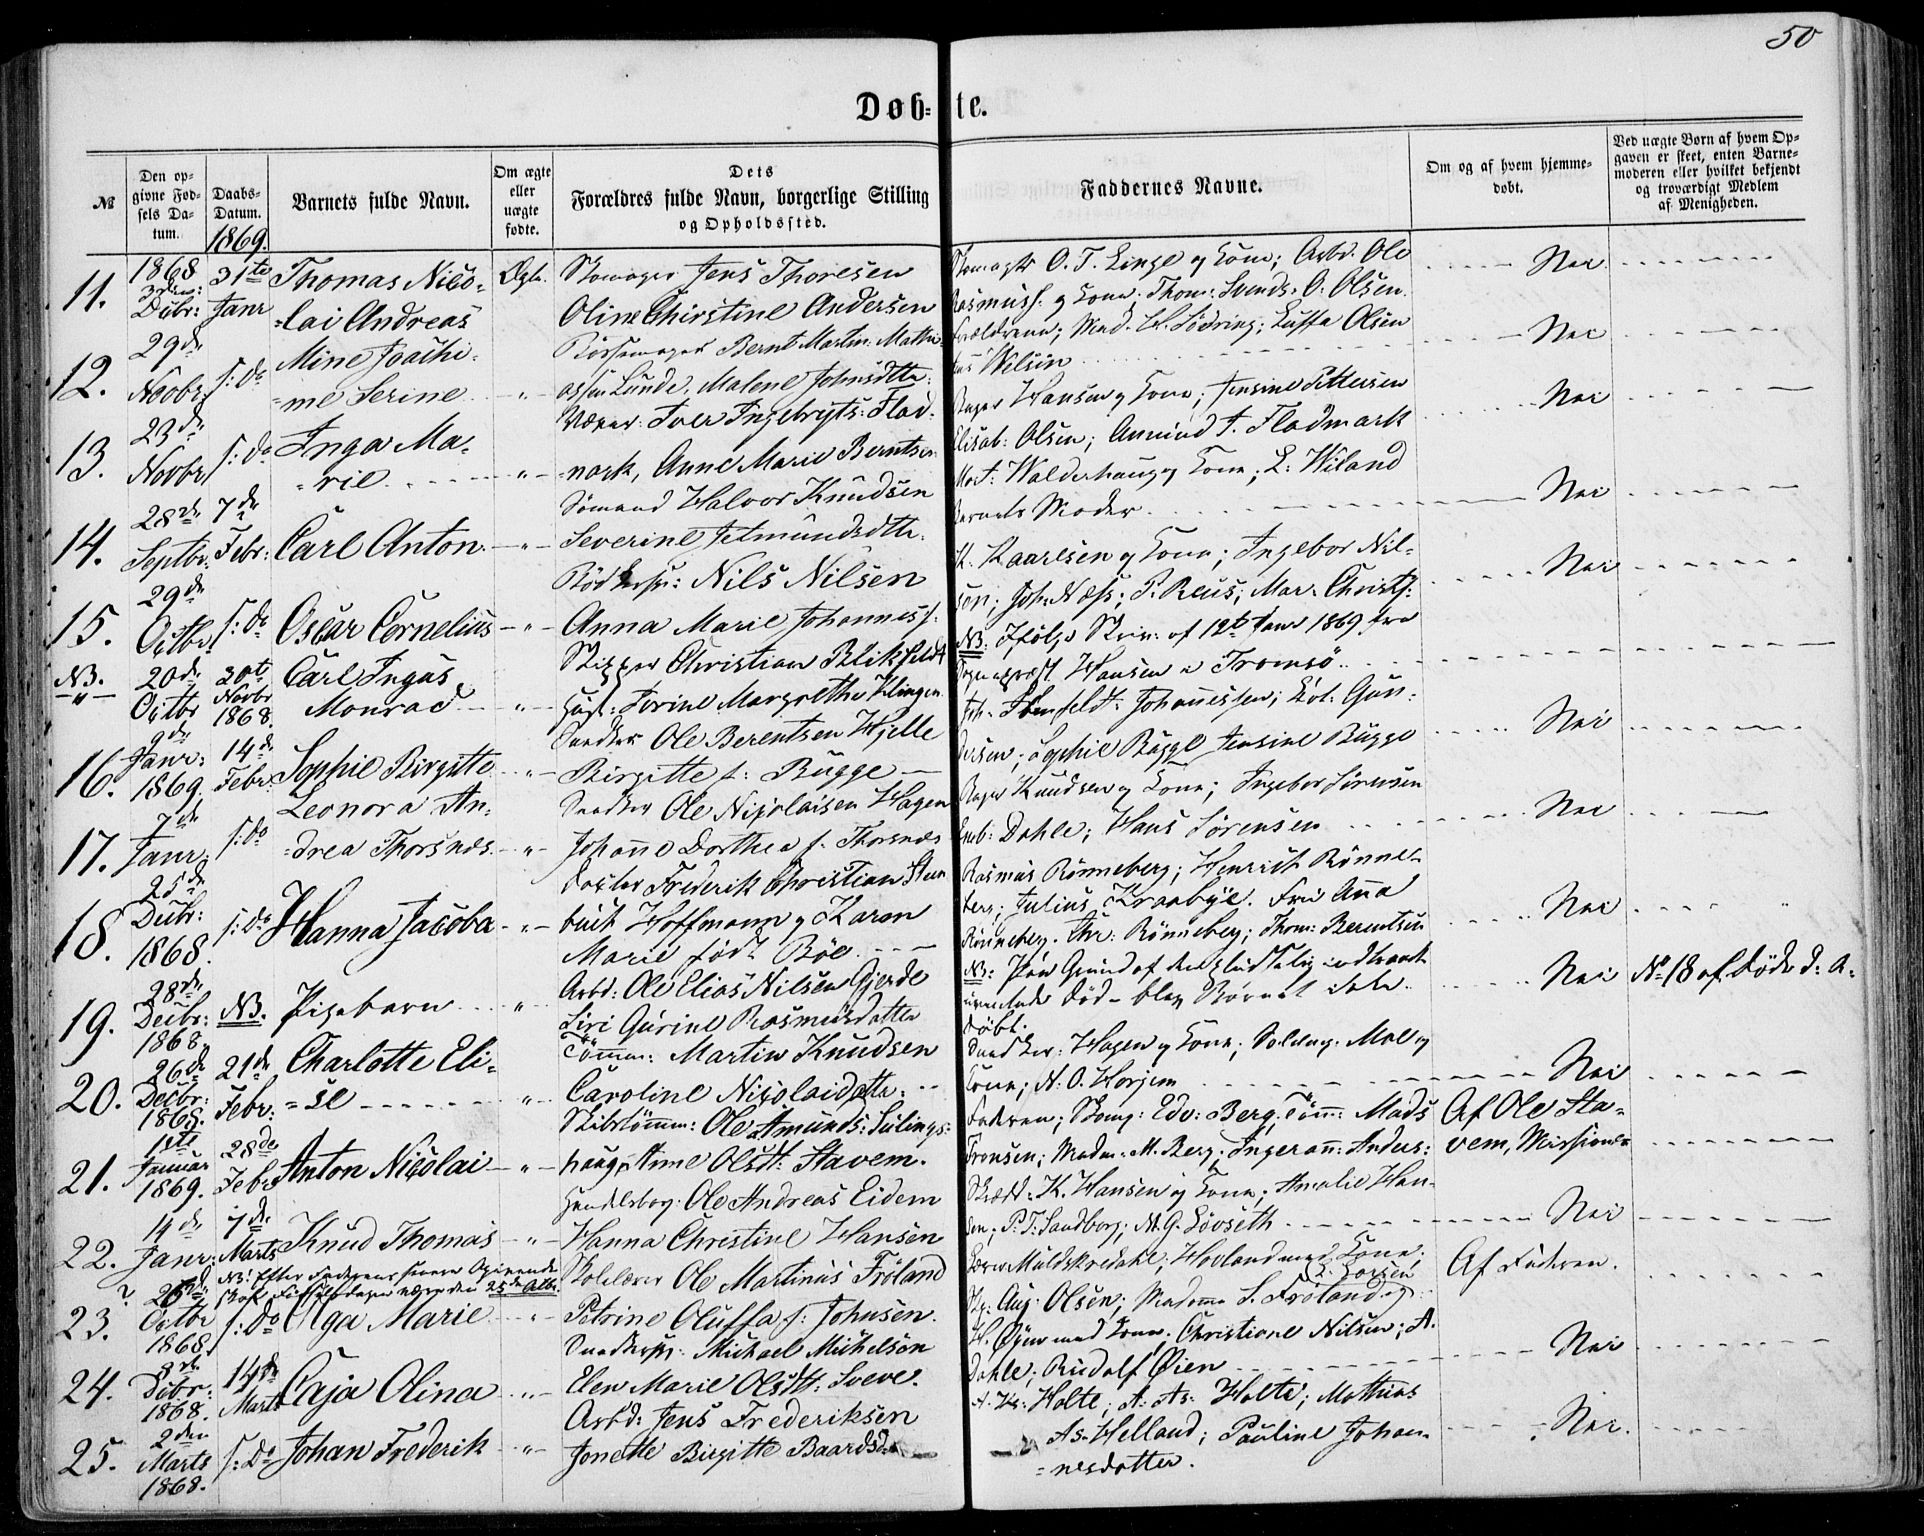 50
Døb=te.
№
Den op=
givne Fød=
sels Da=
tum.
Daabs=
Datum.
1869.
Barnets fulde Navn.
Om ægte
eller
uægte
fødte.
Dets
Forældres fulde Navn, borgerlige Stilling
og Opholdssted.
Faddernes Navne.
Om og af hvem hjemme=
døbt.
Ved uægte Børn af hvem Op=
gaven er skeet, enten Barne=
moderen eller hvilket bekjendt
og troværdigt Medlem
af Menigheden.
11.
1868
3den
Dcbr:
31te
Janr
Thomas Nico=
=lai Andreas
Ægte.
Skomager Jens Thoresen
Oline Christine Andersen
O. T. Linge og Kone; Arbd. Ole
Rasmuss. og Kone; Thom: Svends. O: Olsen.
Nei
12.
29de
Novbr
s: Do
Mine Joachi=
=me Serine
Børsemager Bernt Martin: Mathi=
assen Lunde, Malene Johnsdtter.
Forældrene; Mad. Södring; Luffa Olsen
Nilsen
Nei
13.
23de
Novbr
s: Do
Inga Ma=
=rie
Iver Ingebrigts: Flad=
mark, Anne Marie Berntsen
Hansen og Kone; Jensine Pettersen
Elisab: Olsen; Amund J. Fladmark
Nei
14.
28de
Septbr.
7de
Febr:
Carl Anton.
Sømand Halvor Knudsen
Severine Jetmundsdtter.
Walderhaug og Kone; L: Wiland
Barnets Moder.
Nei
15.
29de
Octbr
s: Do
Oscar Cornelius
Bødkersv: Nils Nilsen
Anna Marie Johanness.
K. Kaarlsen og Kone; Ingebor Nil=
sen; Joh: Næss; P. Reus; Mar. Christs:
Nei
NB.
20de
Octbr
30te
Novbr
1868.
Carl Ingus
Monrad
Skipper Christian Blikfeldt
Hust: Sevrine Margrethe Klingen.
NB: Ifølge Skriv: af 12te Janr 1869 fra
Sogneprest Hansen i Tromsø.
16.
9de
Janr:
1869.
14de
Febr.
Sophie Birgitte
Snedker Ole Berentsen Hjelle
Birgitte f: Bugge
Johannessen; Lot: Gun=
dersen; Sophie Bugge Jensine Bugge
Nei
17.
7de
Janr.
s: Do
Leonora An=
=drea Thorsnes
Snedker Ole Nicolaisen Hagen
Johanne Dorthea f. Thorsnes
Bager Knudsen og Kone; Ingebor Sörensen
Dahle; Hans Sørensen
Nei
18.
25de
Dcbr:
1868.
s: Do
Hanna Jacoba
Doctor Frederik Christian Sten
buch Hoffmann og Karen
Marie født Böe
Rasmus Rönneberg; Henriet Rønne=
berg; Julius Kraabye. Frü Anna
Rönneberg. Chr: Rönneberg; Thom: Berentsen
Nei
19.
28de
Decbr:
1868.
NB.
Pigebarn
Arbd: Ole Elias Nilsen Gjerde
Siri Gurine Rasmusdatter
NB: Paa Grund af den pludselig indtraad=
død – blev Barnet ikke
døbt.
Nei
No 18 af Døde d: A.
20.
26de
Decbr:
1868.
21de
Febr:
Charlotte Eli=
=se
Tömm: Martin Knudsen
Caroline Nicolaidtter.
Snedker: Hagen og Kone; Moe og
Kone; N. O. Horjem
Nei
21.
1ste
Januar
1869.
28de
Febr
Anton Nicolai
Skibstömm: Ole Amunds: Sulings=
haug, Anne Olsdt: Stavem.
Faderen; Skomg: Edv: Berg; Tømm: Mads
Fransen; Madm. M. Berg; Ingerann: Anders:
Af Ole Sta=
vem, Missionær
22.
14de
Janr:
7de
Marts
Knud Thomas
Handelsborg. Ole Andreas Eidem
Hanna Christine Hansen
Skædd: K. Hansen og Kone; Amalie Han=
sen; P. T. Sandborg; N. G. Lövseth
Nei
23.
?
26de
Octbr
1868.
s: Do
NB: Efter Faderens senere Opgivende
skal Fødselsdagen være den 25de Octbr.
Olga Marie
Skolelærer Ole Martinus Fröland
Petrine Oluffa f: Johnsen.
Lærer Muldskredahl, Hovland med Kone;
L. Larsen
Aug: Olsen; Madame S. Fröland og
Af Faderen.
24.
8de
Dcbr:
1868.
14de
Marts
Caja Olina
Snedkersv. Michael Michelsen
Elen Marie Olsdt: Sveve.
H. Øyen med Kone; Christiane Nilsen; A.
Dahle; Rudolf Øien
Nei
25.
2den
Marts
1868.
s: Do
Johan Frederik
Arbd: Jens Frederiksen
Jonette Birgitte Baardsd
A. Kr: Holte; A: As: Holte; Mathias
As. Helland; Pauline Johan=
=nesdatter.
Nei.